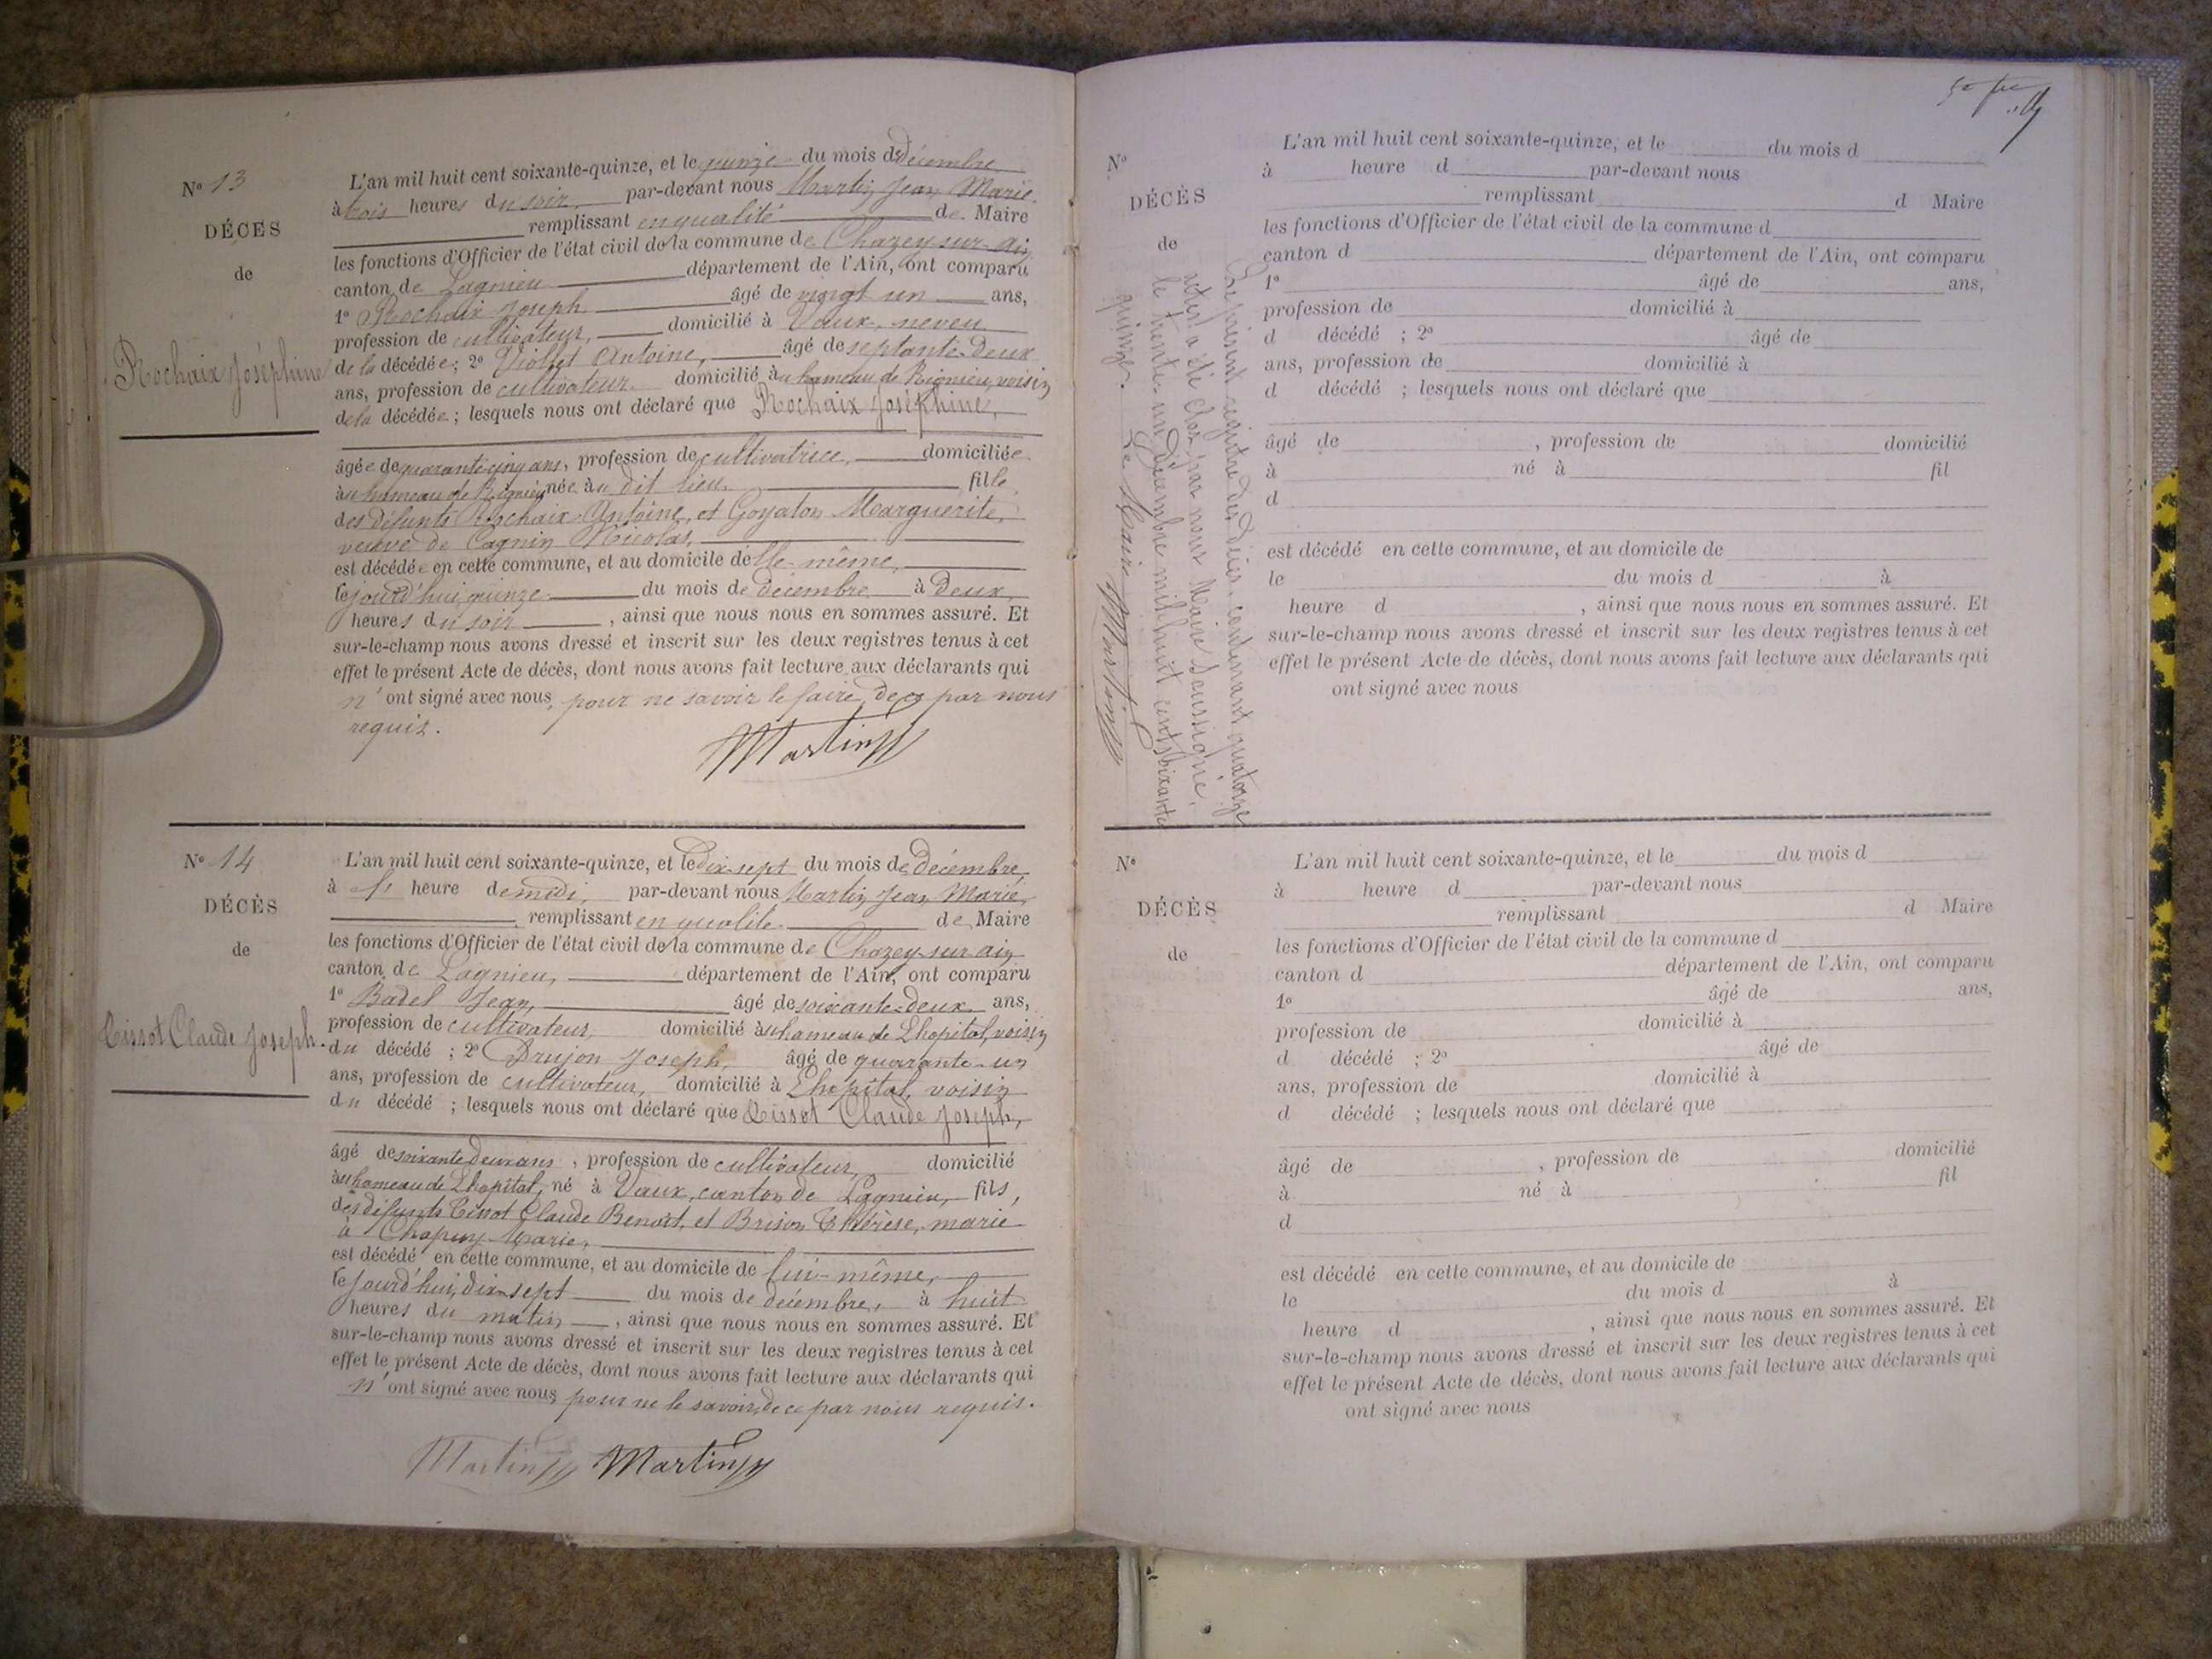 N° 13
DÉCES
de
Rochaix Joséphine
L'an mil huit cent soixante-quinze, et le quinze du mois de décembre
à trois heures du soir, par-devant nous Martin Jean Marie
remplissant en qualité de Maire
les fonctions d'Officier de l'état civil de la commune de Chazey-sur-ain
canton de Lagnieu département de l'Ain, ont comparu
1° Rochaix Joseph âgé de vingt un ans,
profession de cultivateur, domicilié à Vaux, neveu
de la décédée; 2° Violet Antoine, âgé de septante-deux
ans, profession de cultivateur domicilié au hameau de Rignieu, voisin
de la décédée; lesquels nous ont déclaré que Rochaix Joséphine,
âgée de quarante cinq ans, profession de cultivatrice, domiciliée
au hameau de Rignieu née au dit lieu, fille
des défunts Rochaix Antoine, et Goyaton Marguerite,
veuve de Cagnin Nicolas,
est décédée en cette commune, et au domicile d'elle-même,
le jourd'hui quinze du mois de décembre à deux
heures du soir, ainsi que nous nous en sommes assuré. Et
sur-le-champ nous avons dressé et inscrit sur les deux registres tenus à cet
effet le présent Acte de décès, dont nous avons fait lecture aux déclarants qui
n'ont signé avec nous, pour ne savoir le faire, de ce par nous
requis.
Martin
N° 14
DÉCÈS
de
Tissot Claude Joseph.
L'an mil huit cent soixante-quinze, et le dix-sept du mois de décembre,
à heure de midi, par-devant nous Martin Jean Marie,
remplissant en qualité de Maire
les fonctions d'Officier de l'état civil de la commune de Chazey-sur-ain
canton de Lagnieu, département de l'Ain, ont comparu
1° Badel Jean, âgé de soixante-deux ans,
profession de cultivateur, domicilié au hameau de Lhopital, voisin
du décédé ; 2° Drujon Joseph, âgé de quarante-un
ans, profession de cultivateur, domicilié à Lhopital, voisin
du décédé ; lesquels nous ont déclaré que Tissot Claude Joseph,
âgé de soixante deux ans, profession de cultivateur, domicilié
au hameau de Lhopital, né à Vaux, canton de Lagnieu, fils,
des défunts Tissot Claude Benoit, et Brison Thérèse, marié
à Chapuy Marie,
est décédé en cette commune, et au domicile de lui-même,
le jourd'hui, dix-sept du mois de décembre, à huit
heures du matin, ainsi que nous nous en sommes assuré. Et
sur-le-champ nous avons dressé et inscrit sur les deux registres tenus à cet
effet le présent Acte de décès, dont nous avons fait lecture aux déclarants qui
n'ont signé avec nous, pour ne le savoir, de ce par nous requis.
Martin Martin
Le présent registre des décès, contenant quatorze
actes a été clos par nous Maire Soussigné,
le trente-un Décembre mil huit cent soixante
quinze. Le Maire Martin
N°
DÉCÈS
de
L'an mil huit cent soixante-quinze, et le du mois d
à heure d par-devant nous
remplissant d Maire
les fonctions d'Officier de l'état civil de la commune d
canton d département de l'Ain, ont comparu
1° âgé de ans,
profession de domicilié à
d décédé ; 2° âgé de
ans, profession de domicilié à
d décédé ; lesquels nous ont déclaré que
âgé de , profession de domicilié
à né à fil
d
est décédé en cette commune, et au domicile de
le du mois d à
heure d , ainsi que nous nous en sommes assuré. Et
sur-le-champ nous avons dressé et inscrit sur les deux registres tenus à cet
effet le présent Acte de décès, dont nous avons fait lecture aux déclarants qui
ont signé avec nous
N°
DÉCÈS
de
L'an mil huit cent soixante-quinze, et le du mois d
à heure d par-devant nous
remplissant d Maire
les fonctions d'Officier de l'état civil de la commune d
canton d département de l'Ain, ont comparu
1° âgé de ans,
profession de domicilié à
d décédé ; 2° âgé de
ans, profession de domicilié à
d décédé ; lesquels nous ont déclaré que
âgé de , profession de domicilié
à né à fil
d
est décédé en cette commune, et au domicile de
le du mois d à
heure d , ainsi que nous nous en sommes assuré. Et
sur-le-champ nous avons dressé et inscrit sur les deux registres tenus à cet
effet le présent Acte de décès, dont nous avons fait lecture aux déclarants qui
ont signé avec nous